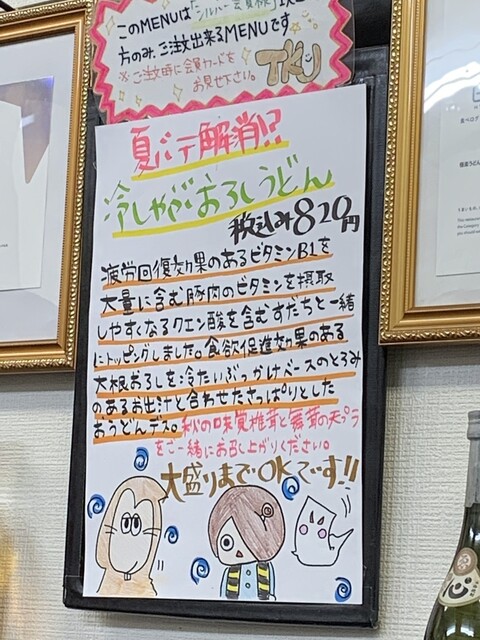 このMENUは「シルバー会員様」以上の
方のみ、ご注文出来るMENUです。
※ご注文時に会員カードを
お見せ下さい。
TKU
夏バテ解消!?
冷しゃぶおろしうどん
税込み820円
疲労回復効果のあるビタミンB1を
大量に含む豚肉のビタミンを摂取
しやすくなるクエン酸を含むすだちと一緒
にトッピングしました。食欲促進効果のある
大根おろしを冷たいぶっかけベースのとろみ
のあるお出汁と合わせたさっぱりとした
おうどんデス。秋の味覚椎茸と舞茸の天プラ
をご一緒にお召し上がりください。
大盛りまでOKでーす!!